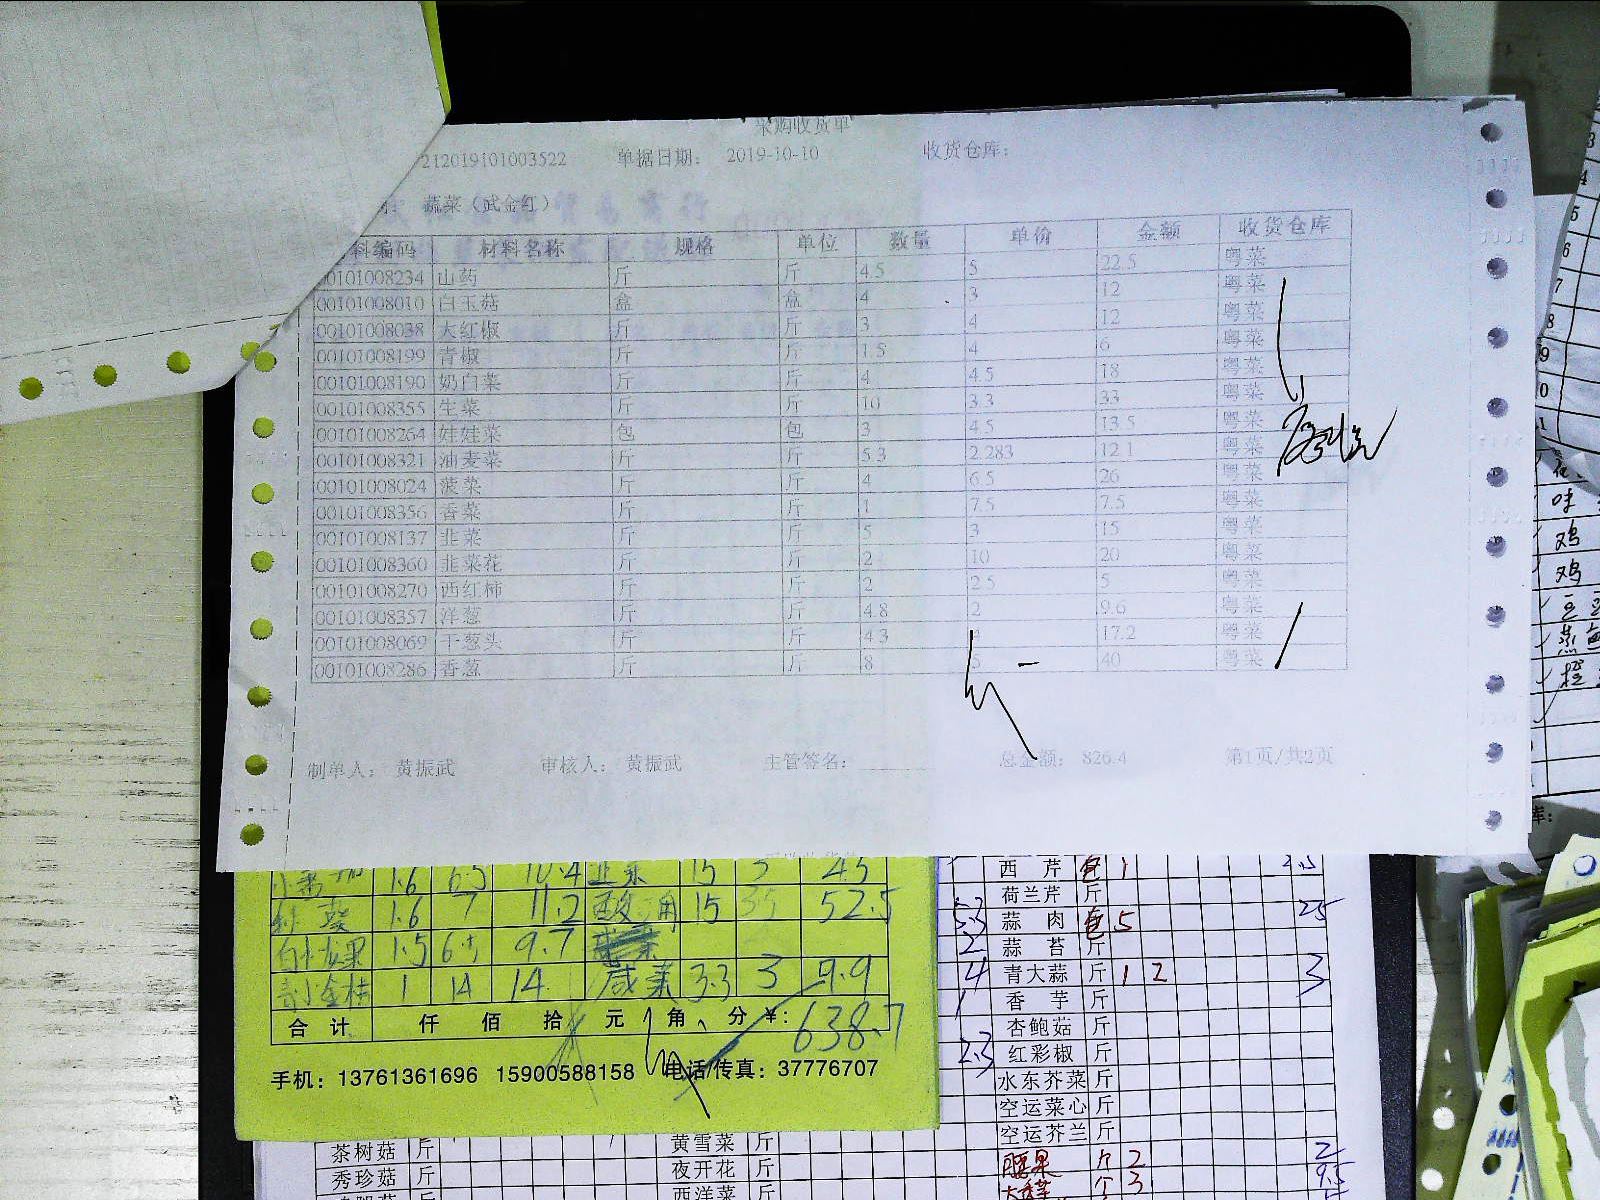 采购收货单
212019101003522 单据日期： 2019-10-10 收货仓库：
蔬菜（武金红）
料编码 材料名称 规格 单位 数量 单价 金额 收货仓库
00101008234 山药 斤 斤 4.5 5 22.5 粤菜
00101008010 白玉菇 盒 盒 4 3 12 粤菜
00101008038 大红椒 斤 斤 3 4 12 粤菜
00101008199 青椒 斤 斤 1.5 4 6 粤菜
00101008190 奶白菜 斤 斤 4 4.5 18 粤菜
00101008355 生菜 斤 斤 10 3.3 33 粤菜
00101008264 娃娃菜 包 包 3 4.5 13.5 粤菜
00101008321 油麦菜 斤 斤 5.3 2.283 12.1 粤菜
00101008024 菠菜 斤 斤 4 6.5 26 粤菜
00101008356 香菜 斤 斤 1 7.5 7.5 粤菜
00101008137 韭菜 斤 斤 5 3 15 粤菜
00101008360 韭菜花 斤 斤 2 10 20 粤菜
00101008270 西红柿 斤 斤 2 2.5 5 粤菜
00101008357 洋葱 斤 斤 4.8 2 9.6 粤菜
00101008069 干葱头 斤 斤 4.3 17.2 粤菜
00101008286 香葱 斤 斤 8 5 40 粤菜
制单人： 黄振武 审核人： 黄振武 主管签名： 总金额： 826.4 第1页/共2页
1.6 6.5 10.4 15 3 45
1.6 7 11.2 15 35 52.5
1.5 6.5 9.7
1 14 14 咸菜 3.3 3 9.9
合计 仟 佰 拾 元 角 分 ¥： 638.7
手机：13761361696 15900588158 电话/传真：37776707
西芹 包 1
荷兰芹 斤
5.3 蒜肉 包 5 25
2 蒜苔 斤
4 青大蒜 斤 1 2 3
1 香芋 斤
杏鲍菇 斤
2.3 红彩椒 斤
水东芥菜 斤
空运菜心 斤
空运芥兰 斤
茶树菇 斤 黄雪菜 斤 腰果 个 2 2
秀珍菇 斤 夜开花 斤 3 9.5
西洋菜